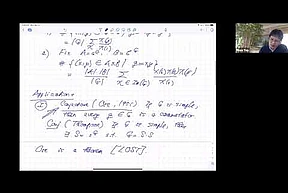 2) Fix A = a^G, B = b^G
# { (x,y) ∈ A×B | g = xy }
= |A| |B| / |G| Σ χ(a)χ(b)χ(g) / χ(1)
χ ∈ Irr(G)
Applications
① Conjecture (Ore, 1951) If G is simple,
then every g ∈ G is a commutator
Conj (Thompson) If G is simple, then
∃ S = s^G s.t. G = S·S
Ore is a theorem [LOST].